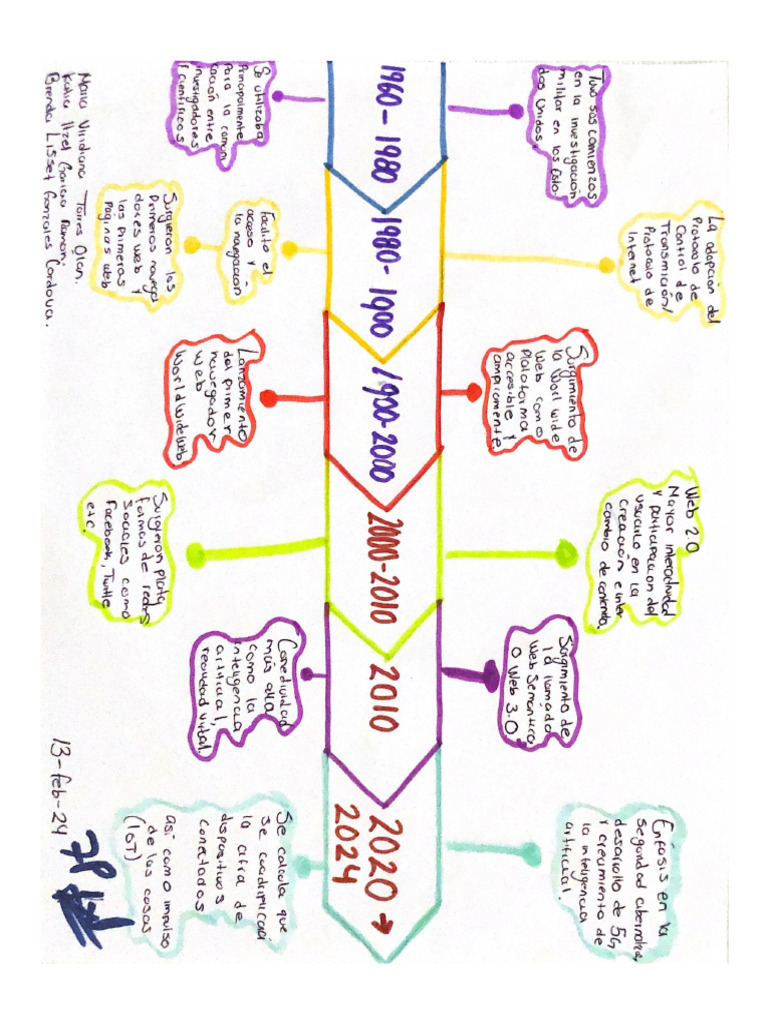 Tuvo sos comienzos
en la investigación
militar en los Esta-
dos Unidos.
La adopción del
Protocolo de
Control de
Transmición/
Protocolo de
Internet
Surgimiento de
la Worl wide
Web como
Plataforma
accesible y
ampliamente
Web 2.0
Mayor interactividad
y participación del
usuario en la
creación e inter
cambio de contenido.
Surgimiento de
la llamado
Web Semántica
o Web 3.0
Énfasis en la
seguridad cibernetica,
desarrollo de 5G,
y crecimiento de
la inteligencia
artificial.
1960-1980
1980-1900
1900-2000
2000-2010
2010
2020 →
2024
Se utilizaba
Principalmente
para la comuni
cación entre
investigadores
científicos
Facilito el
acceso y
la navegación
Surgieron los
Primeros navega
dores web y
las primeras
Páginas web
Lanzamiento
del primer
navegador
Web
WorldWideWeb
Surgieron plata
formas de redes
sociales como
Facebook, Twitte
etc.
Conectividad
más alla
como la
inteligencia
artificial,
realidad virtal.
Se calcula que
se cuadiplicará
la cifra de
dispositivos
conectados
asi como impulso
de las cosas
(IoT)
Maria Viridiana Torres Olan.
Katia Itzel Garcia Ramon.
Brenda Lisset Gonzales Cordova.
13-feb-24